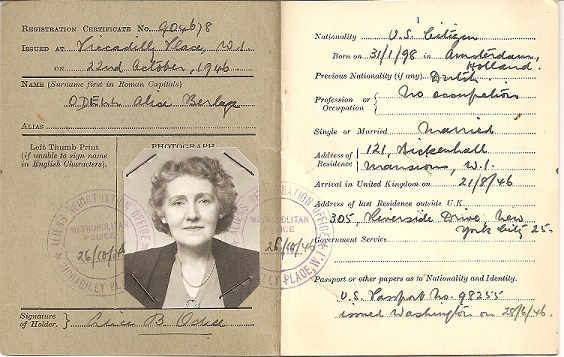 REGISTRATION CERTIFICATE No. 904678
ISSUED AT Piccadilly Place, W.1.
ON 22nd October, 1946
NAME (Surname first in Roman Capitals)
ODELL Alice Berlage
ALIAS
Left Thumb Print
(if unable to sign name
in English Characters).
PHOTOGRAPH
ALIENS REGISTRATION OFFICE
METROPOLITAN
POLICE
26/10/46
PICCADILLY PLACE, W.1.
METROPOLITAN
POLICE
26/10/46
Signature
of Holder. Alice B Odell
Nationality U.S. Citizen
Born on 31/1/98 in Amsterdam,
Holland.
Previous Nationality (if any) Dutch
Profession or
Occupation No occupation
Single or Married Married
Address of
Residence 121, Bickenhall
Mansions, W.1.
Arrival in United Kingdom on 21/8/46
Address of last Residence outside U.K.
305, Riverside Drive, New
York City 25-
Government Service
Passport or other papers as to Nationality and Identity.
U.S. Passport No. 98255
issued Washington on 28/6/46.